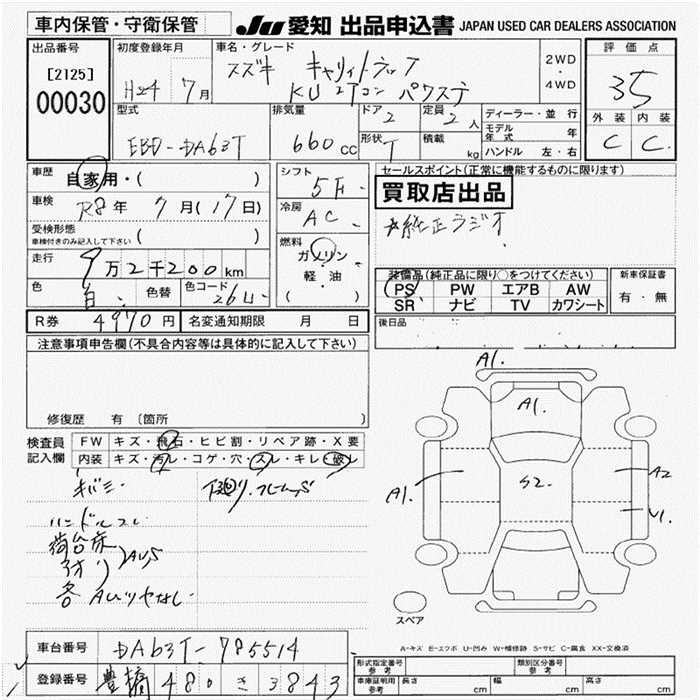 車内保管・守衛保管
JU 愛知 出品申込書 JAPAN USED CAR DEALERS ASSOCIATION
出品番号
[2125]
00030
初度登録年月
H24 7月
車名・グレード
スズキ キャリイトラック
KU エアコン パワステ
2WD
・
4WD
評価点
3.5
外装 内装
C C
型式
EBD-DA63T
排気量
660cc
ドア
2
定員
2人
形状
T
積載
kg
ディーラー・並行
モデル年式 年
ハンドル 左・右
車歴
自家用・( )
車検
R8年 7月(17日)
受検形態
車検付きのみ記入して下さい
( )
走行
9万2千200km
色
白
色替
色コード
26U
シフト
5F
冷房
AC
燃料
ガソリン
・
軽・油
( )
セールスポイント(正常に機能するものに限ります)
買取店出品
☆純正ラジオ
装備品(純正品に限り○をつけてください)
PS PW エアB AW
SR ナビ TV カワシート
新車保証書
有・無
後日品
R券 4970円
名変通知期限 月 日
注意事項申告欄(不具合内容等は具体的に記入して下さい)
修復歴 有 〔箇所 〕
検査員記入欄
FW キズ・飛石・ヒビ割・リペア跡・X要
内装 キズ・汚レ・コゲ・穴・スレ・キレ・破レ
キバミ
下廻り、フレームS
ハンドルスレ
荷台床
アオリ
AUS
各 AUツヤなし
A1.
A1.
A1.
S2.
A2
U1.
スペア
A-キズ E-エクボ U-凹み W-補修跡 S-サビ C-腐食 XX-交換済
車台番号
DA63T-785514
登録番号
豊橋 480 き 3843
形式指定番号
参考
類別区分番号
参考
車庫証明用
参考
長さ cm
幅 cm
高さ cm